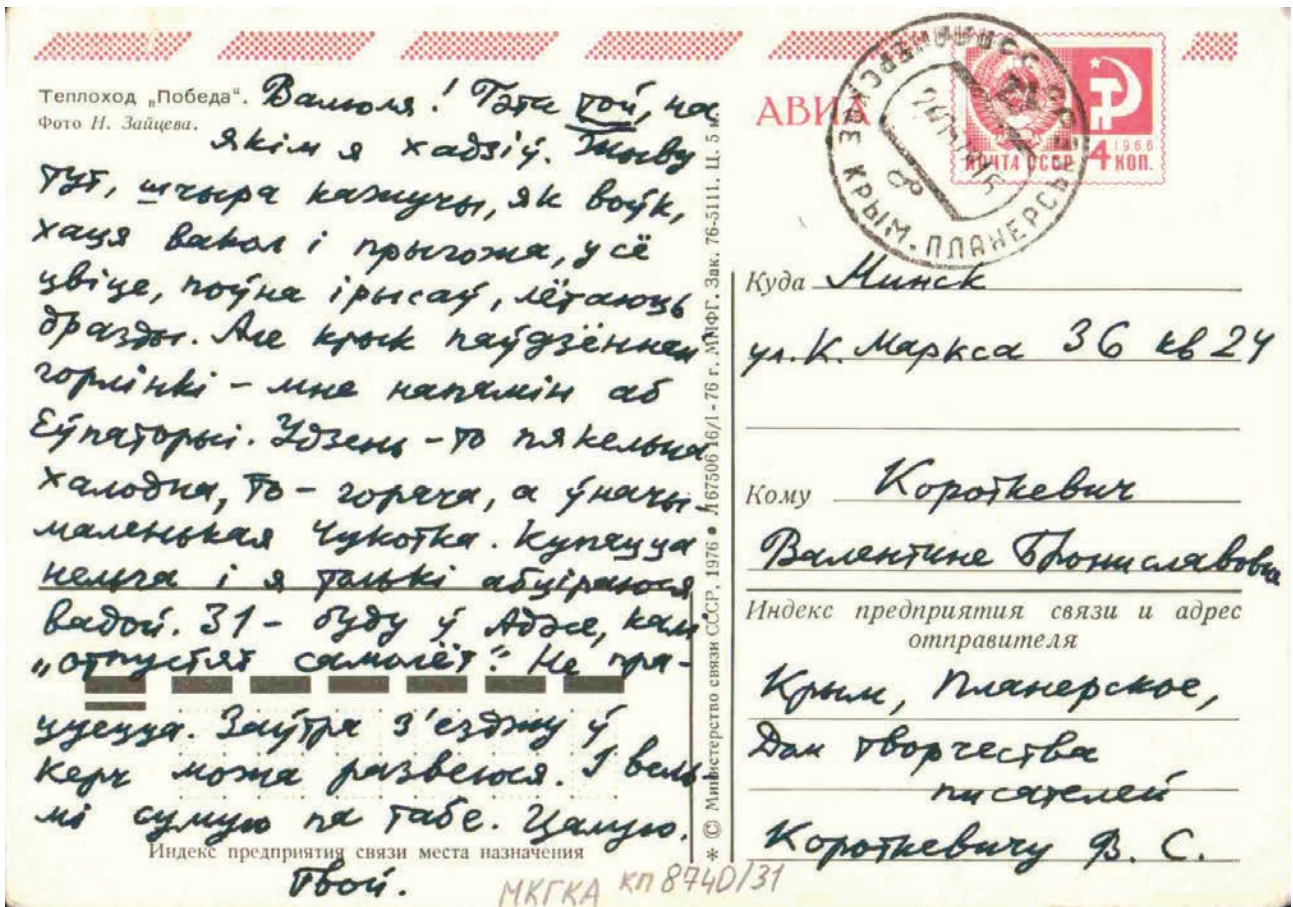 Теплоход „Победа".
Фото Н. Зайцева.
Валюля! Гэта той, на
якім я хадзіў. Жыву
тут, шчыра кажучы, як воўк,
хаця вакол і прыгожа, усё
цвіце, поўна ірысаў, лётаюць
дразды. Але крык паўдзённай
горлінкі – мне напамін аб
Еўпаторыі. Удзень – то пякельна
халодна, то – горача, а ўначы –
маленькая Чукотка. Купацца
нельга і я толькі абціраюся
вадой. 31 – буду ў Адэсе, калі
„отпустят самолёт". Не пра-
цуецца. Заўтра з'езджу ў
Керч можа развеюся. І вель-
мі сумую па табе. Цалую.
Твой.
Индекс предприятия связи места назначения
* © Министерство связи СССР, 1976 • Л67506 16/I - 76 г. ММФГ. Зак. 76-5111. Ц. 5 к.
АВИА
ПОЧТА СССР
1966
4 КОП.
КРЫМ. ПЛАНЕРСЬКЕ
Куда Минск
ул. К. Маркса 36 кв 24
Кому Короткевич
Валентине Брониславовне
Индекс предприятия связи и адрес
отправителя
Крым, Планерское,
Дом творчества
писателей
Короткевичу В. С.
МКГКА КП 8740/31